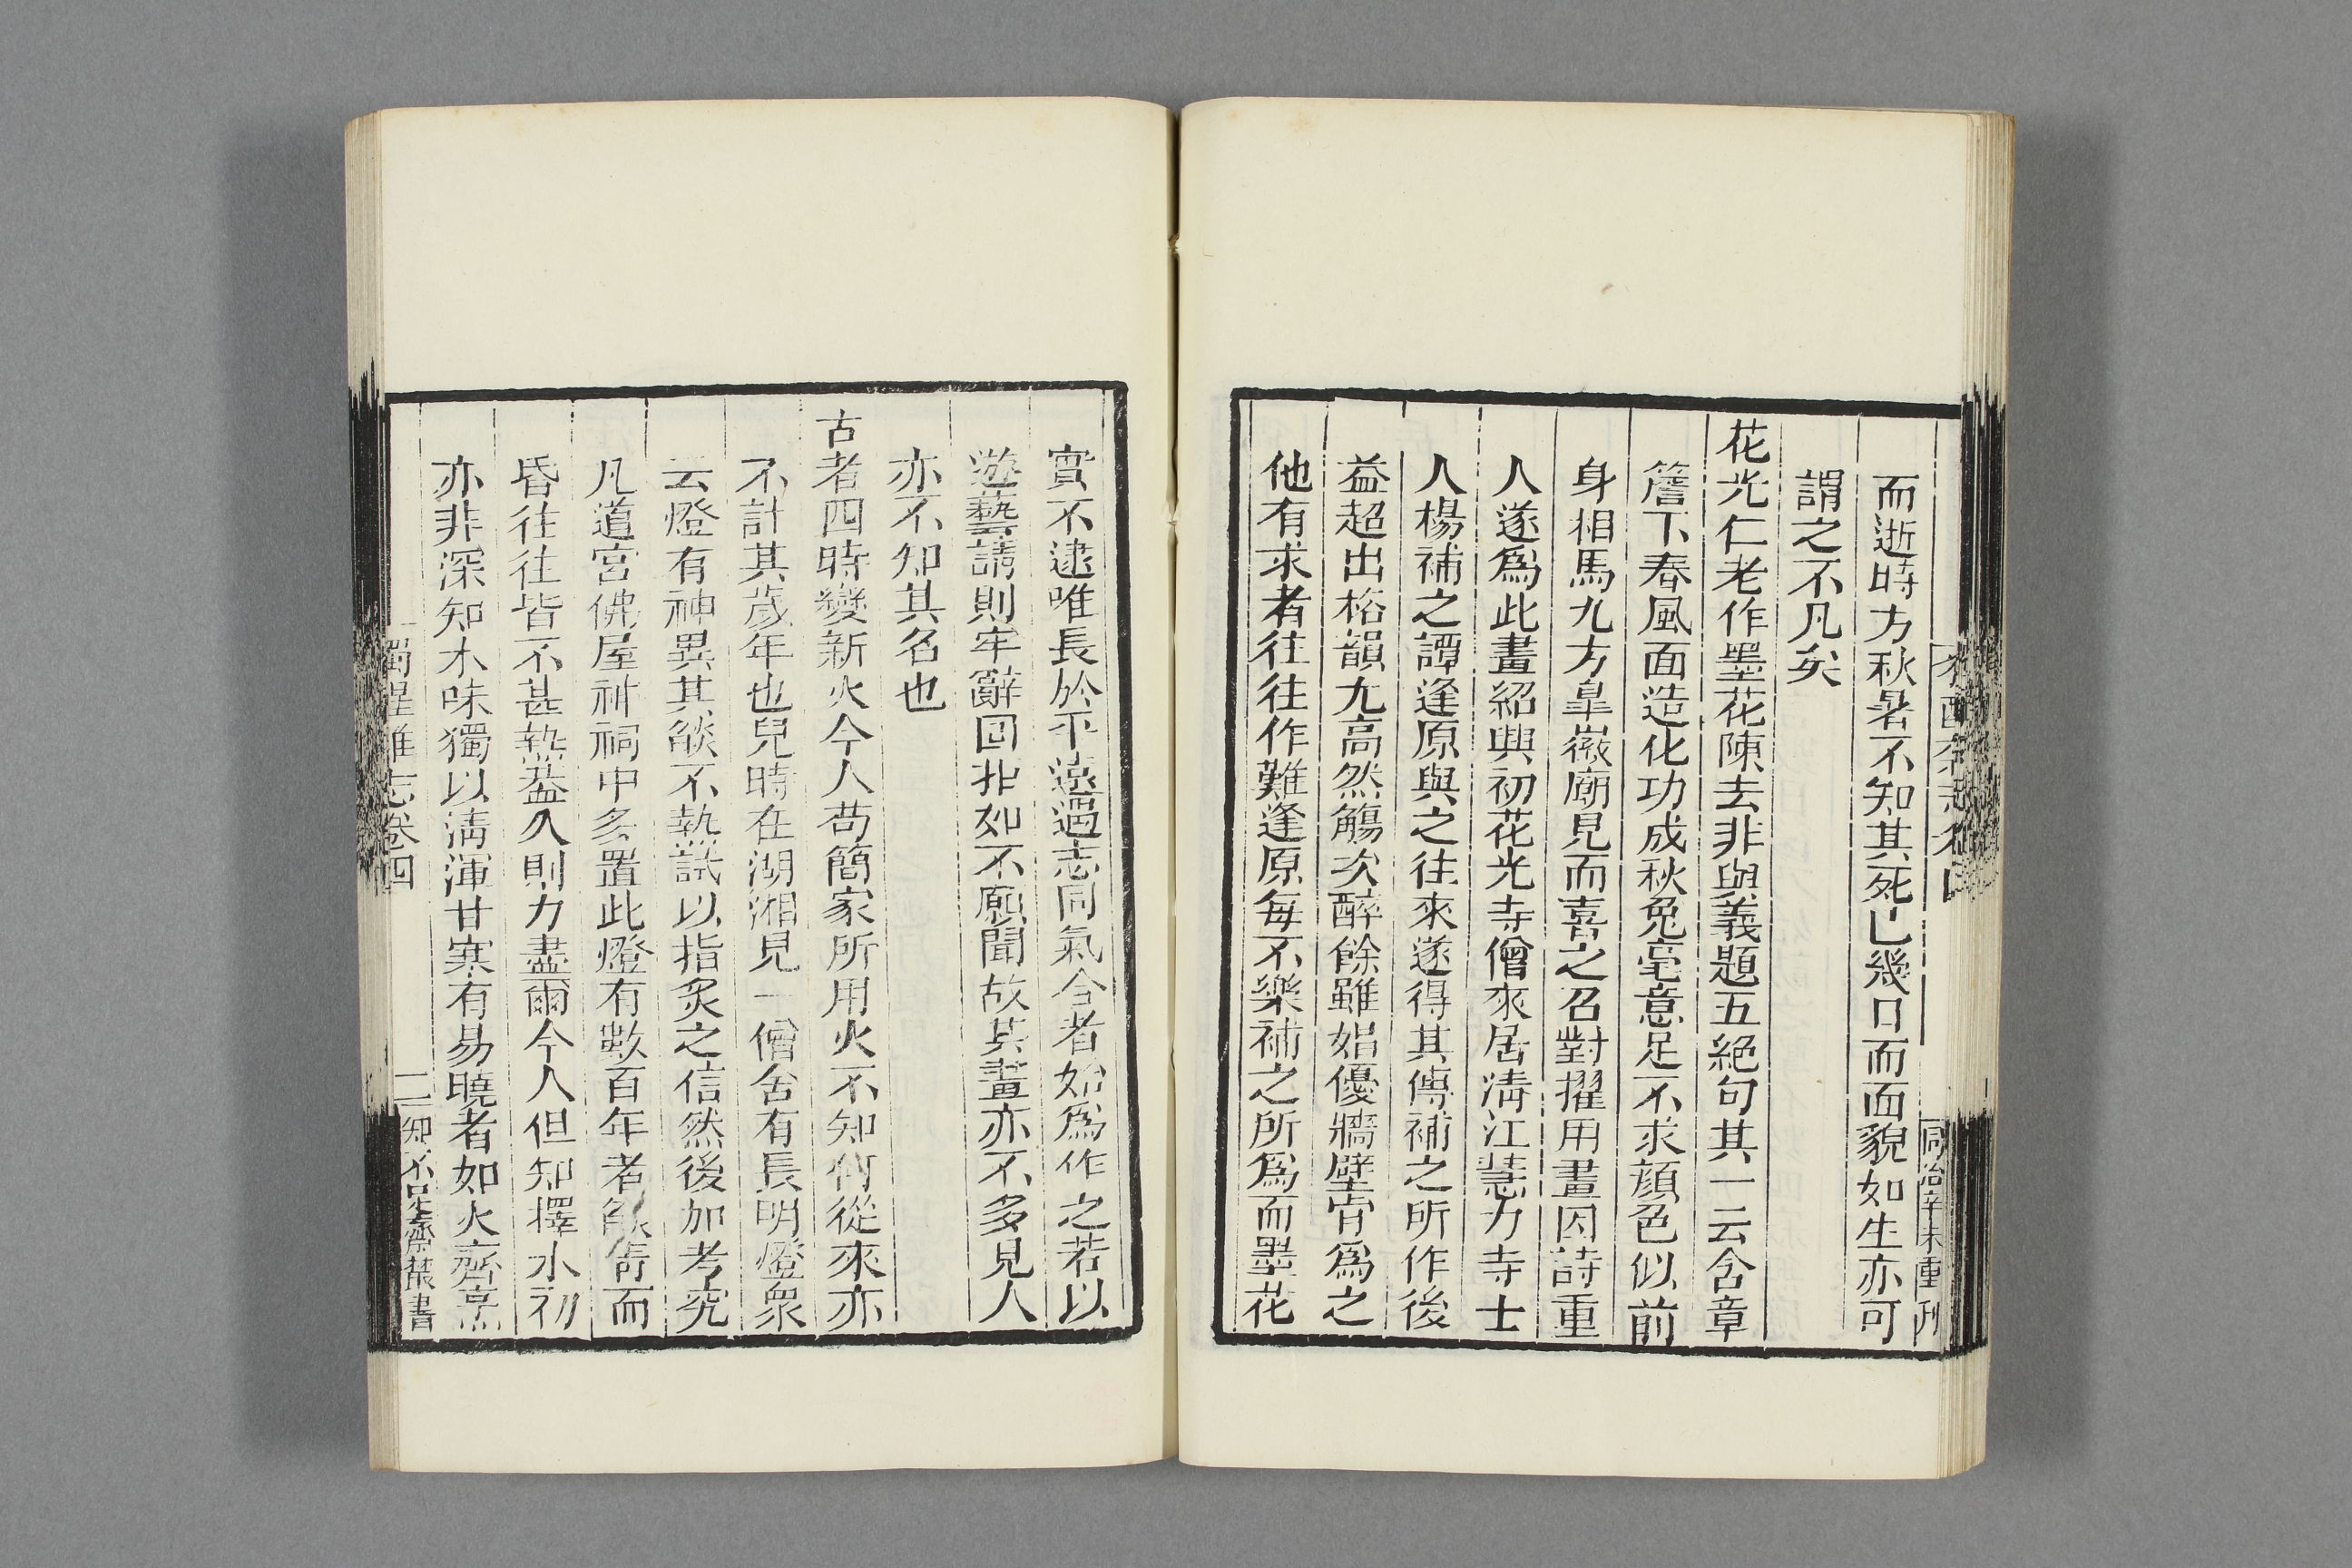 而逝時方秋暑不知其死已幾日而面貌如生亦可
謂之不凡矣
花光仁老作墨花陳去非與義題五絕句其一云含章
簷下春風面造化功成秋兔毫意足不求顔色似前
身相馬九方臯徽廟見而喜之召對擢用畫因詩重
人遂爲此畫紹興初花光寺僧來居清江慧力寺士
人楊補之譚逢原與之往來遂得其傳補之所作後
益超出格韻尤高然觴次醉餘雖娼優牆壁肯爲之
他有求者往往作難逢原每不樂補之所爲而墨花
實不逮唯長於平遠遇志同氣合者始爲作之若以
遊藝請則牢辭固拒如不願聞故其畫亦不多見人
亦不知其名也
古者四時變新火今人苟簡家所用火不知何從來亦
不計其歲年也兒時在湖湘見一僧舍有長明燈衆
云燈有神異其燄不熱試以指炙之信然後加考究
凡道宮佛屋神祠中多置此燈有數百年者燄靑而
昏往往皆不甚熱葢久則力盡爾今人但知擇水初
亦非深知水味獨以清渾甘寒有易曉者如火齊烹
獨醒雜志卷四
二
知不足齋叢書
同治辛未重刊